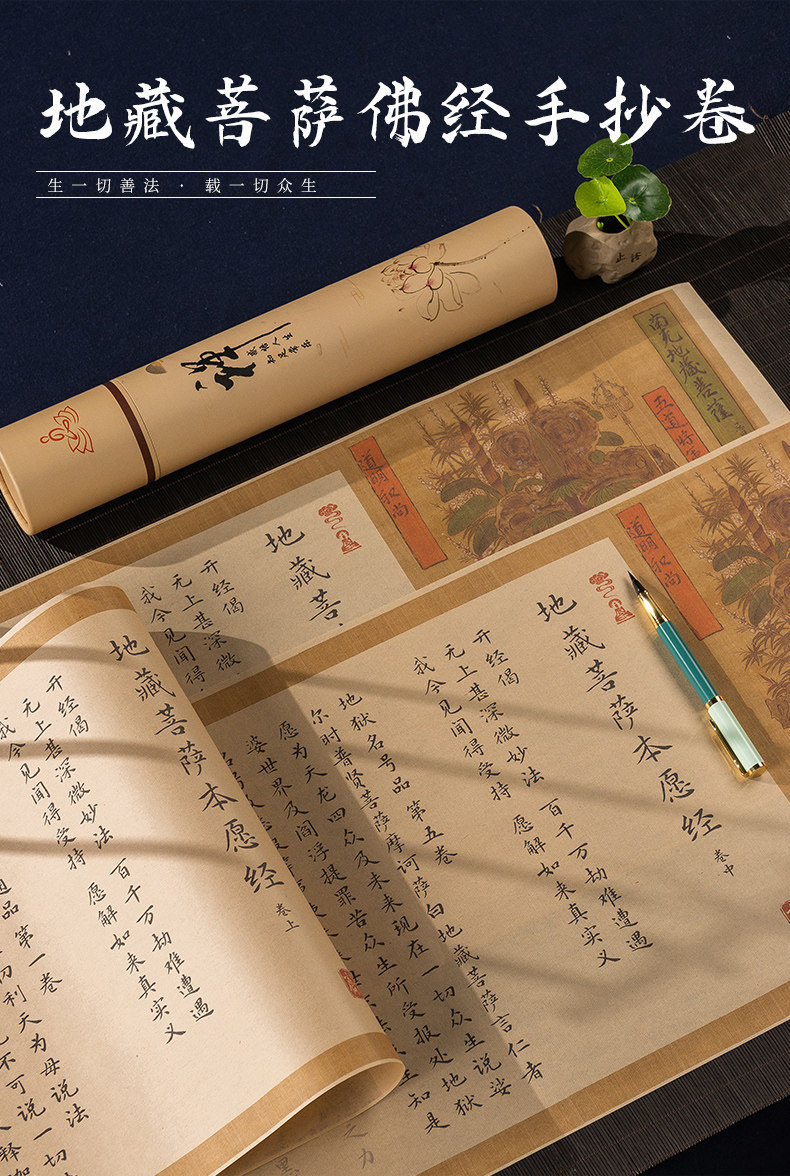 地藏菩萨佛经手抄卷
生一切善法 · 载一切众生
禅
感悟人生
如是喜乐
止语
南无地藏菩萨
道明和尚
地藏菩
开经偈
无上甚深微
我今见闻得
道明和尚
地藏菩萨本愿经
卷中
开经偈
无上甚深微妙法 百千万劫难遭遇
我今见闻得受持 愿解如来真实义
地狱名号品第五卷
尔时普贤菩萨摩诃萨白地藏菩萨言仁者
愿为天龙四众及未来现在一切众生说娑
婆世界及阎浮提罪苦众生所受报处地狱
地藏菩萨本愿经
卷上
开经偈
无上甚深微妙法 百千万劫难遭遇
我今见闻得受持 愿解如来真实义
品第一卷
切利天为母说法
不可说一切
释迦
之力